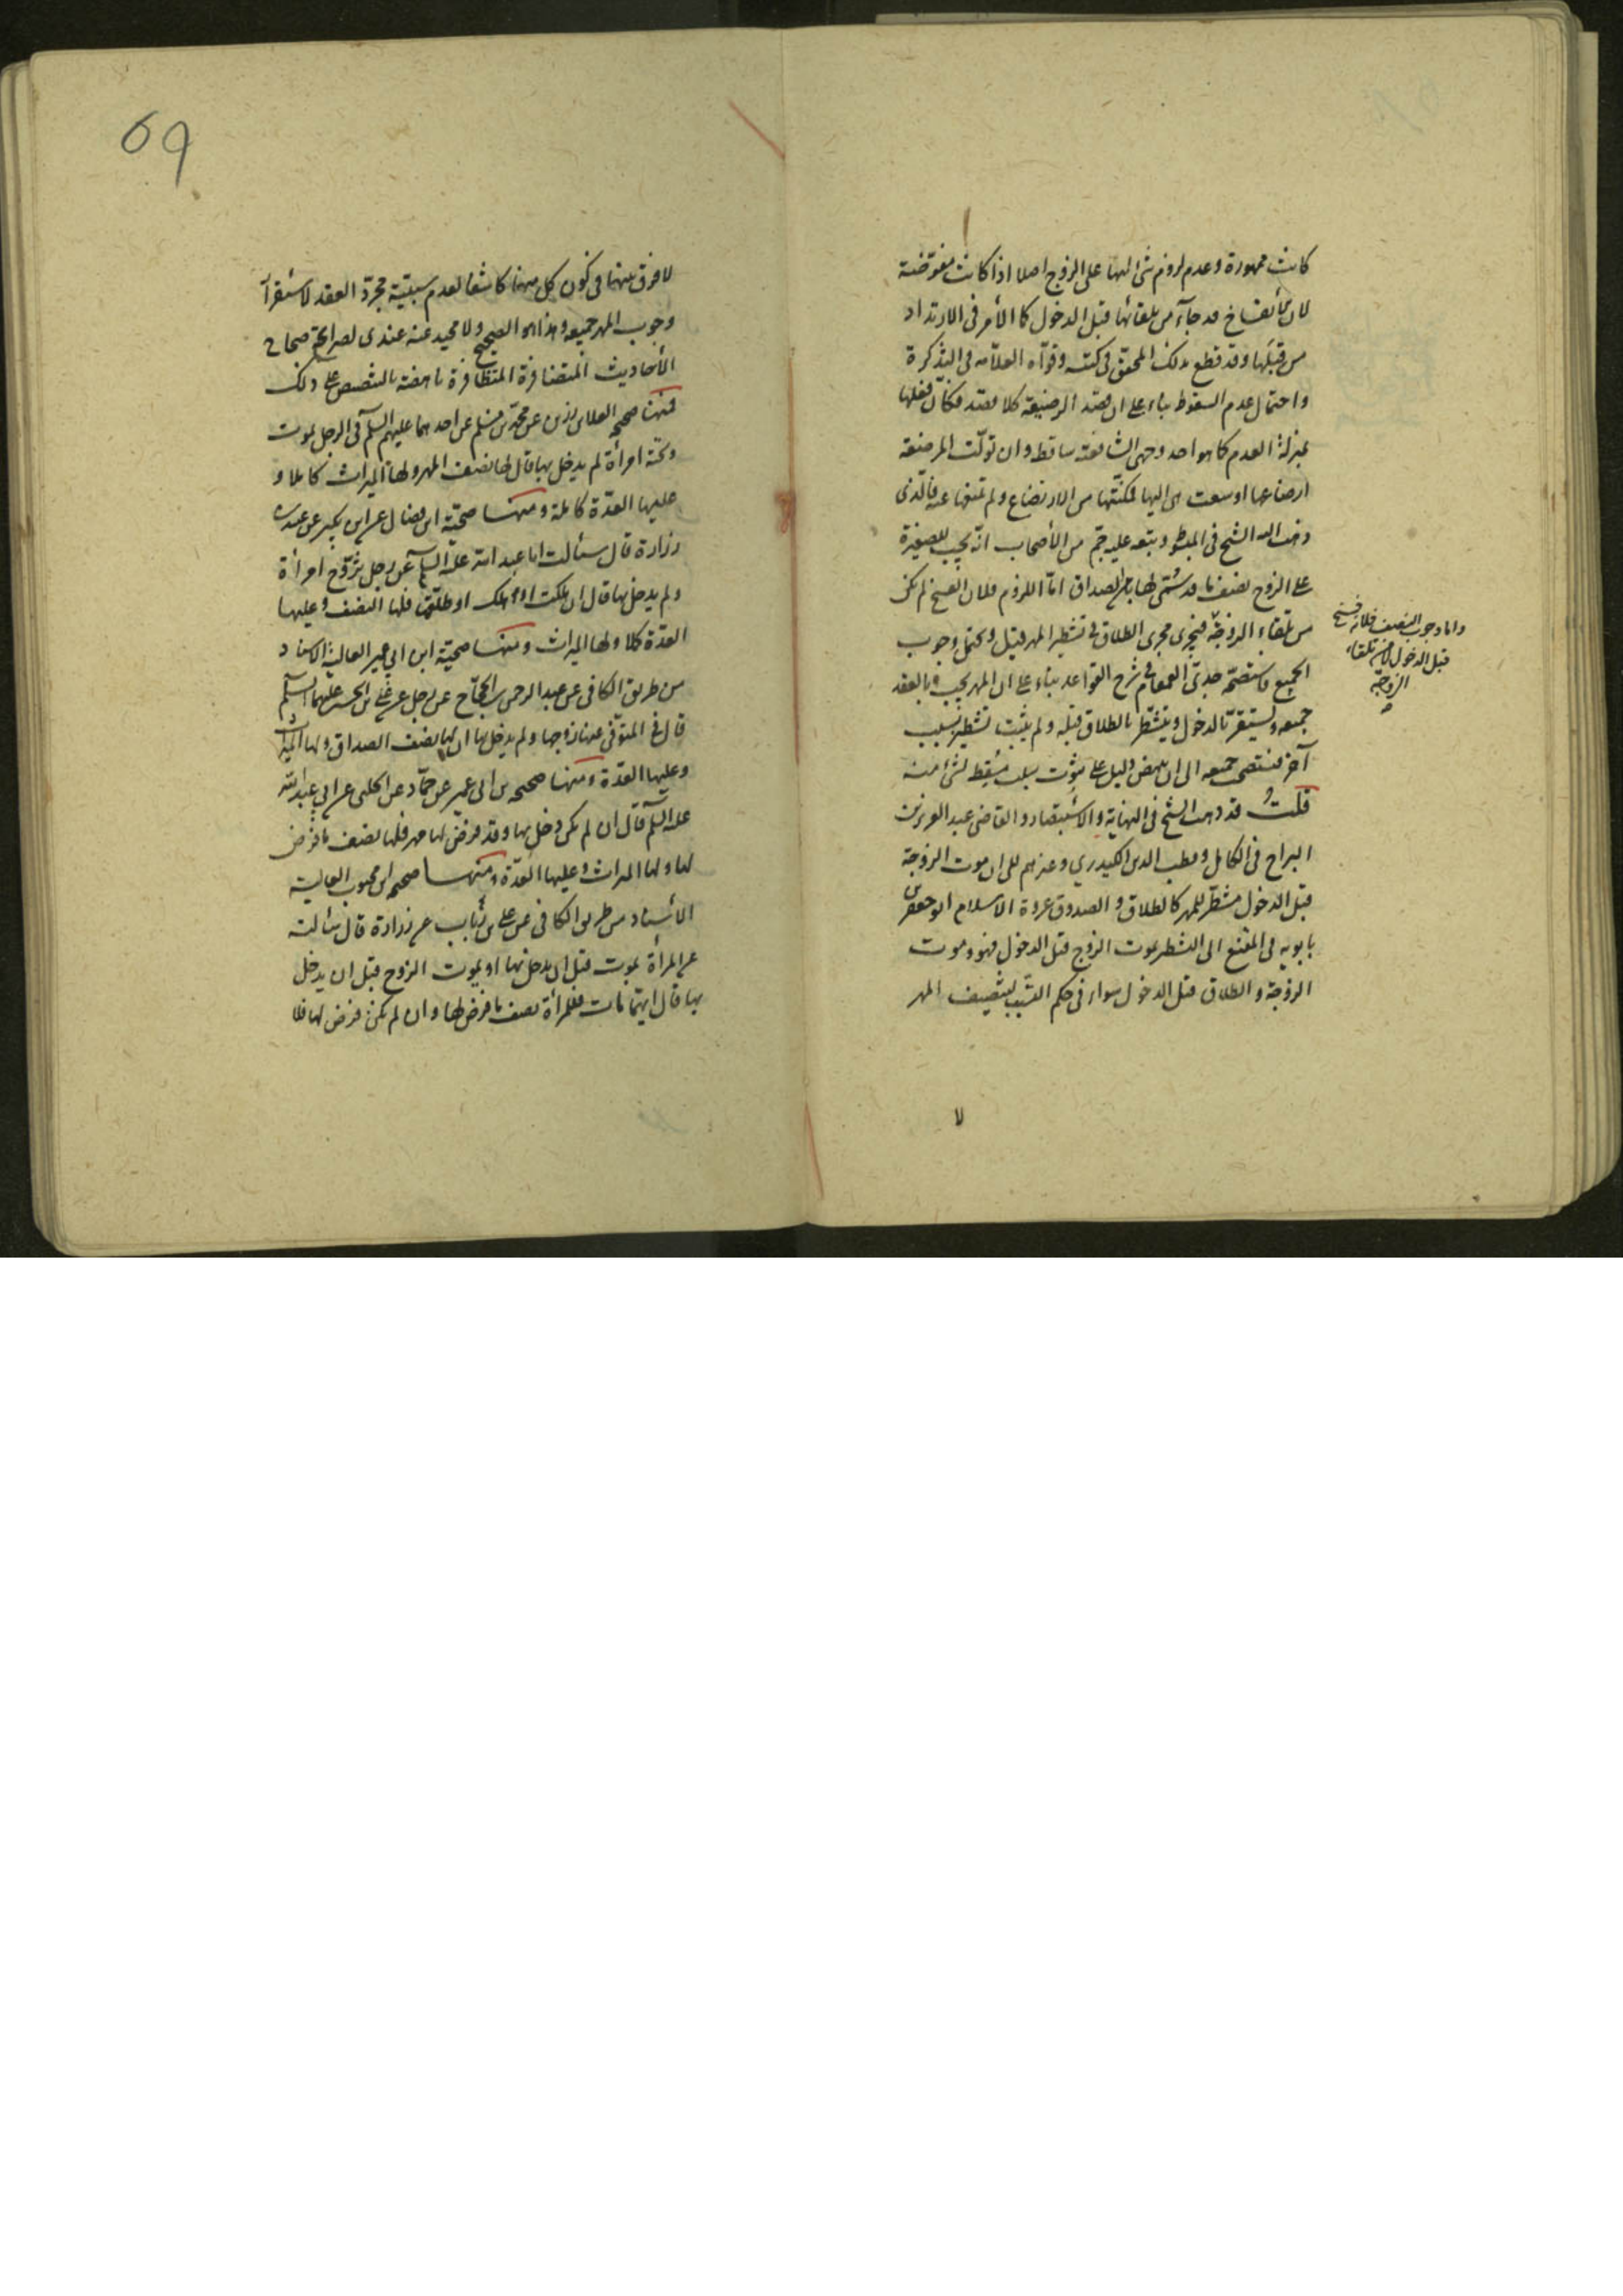 كانت ممهورة وعدم لزوم شئ لها على الزوج اصلا اذا كانت مفوّضة
لان الأنفساخ قد جآء من تلقائها قبل الدخول كالأمر في الارتداد
من قبلها وقد قطع بذلك المحقق في كتبه وقوّاه العلاّمه في التذكرة
واحتمل عدم السقوط بناء على ان قصد الرضيعة كلا قصد فكانّ فعلها
بمنزلة العدم كما هو احد وجهي الشافعية ساقط وان تولّت المرضعة
ارضاعها او سعت هي اليها فمكّنتها من الارتضاع ولم تمنعها عنه فالّذي
ذهب اليه الشيخ في المبسوط وتبعه عليه جمّ من الأصحاب انّه يجب للصغيرة
على الزوج نصف ما قد سُمّي لها الصداق امّا اللزوم فلان الفسخ لم يكن
من تلقاء الزوجة فيجري مجرى الطلاق في تشطير المهر قيل ويحتمل وجوب
الجميع واستصحّه جدّي القمقام في شرح القواعد بناء على ان المهر يجب بالعقد
جميعه ويستقرّ بالدخول ويتشطّر بالطلاق قبله ولم يثبت تشطيره بسبب
آخر فيستصحب جميعه الى ان ينهض دليل على ثبوت سبب مسقط لشئ منه
قلتُ قد ذهب الشيخ في النهاية والأستبصار والقاضي عبد العزيز بن
البراج في الكامل وقطب الدين الكيدري وغيرهم الى ان موت الزوجة
قبل الدخول مشطّر للمهر كالطلاق والصدوق عروة الاسلام ابو جعفر بن
بابويه في المقنع الى التشطر بموت الزوج قبل الدخول فهو وموت
الزوجة والطلاق قبل الدخول سواء في حكم التسبب لتنصيف المهر
لا
واما وجوب النصف فلانه فسخ
قبل الدخول لا من تلقاء
الزوجة
69
لا فرق بينها في كون كل منها كاشفا لعدم سببيّة مجرّد العقد لاستقرآء
وجوب المهر جميعه وهذا هو الصحيح ولا محيد عنه عندي لصرايح صحاح
الأحاديث المتضافرة المتظافرة ناهضة بالتنصيص على ذلك
فمنها صحيحة العلاء بن رزين عن محمّد بن مسلم عن احدهما عليهم السلّم في الرجل يموت
وتحته امرأة لم يدخل بها قال لها نصف المهر ولها الميراث كاملا و
عليها العدّة كاملة ومنها صحيّة ابن فضال عن ابن بكير عن عبيد بن
زرارة قال سئالت ابا عبد الله عليه السلّم عن رجل تزوّج امرأة
ولم يدخل بها قال ان هلكت او هلك او طلّقها فلها النصف وعليها
العدّة كملا ولها الميراث ومنها صحيّة ابن ابي عمير العالية الاسناد
من طريق الكافي عن عبد الرحمن بن الحجّاج عن رجل عن علي بن الحسين عليهما السلّم
قال في المتوفّى عنها زوجها ولم يدخل بها ان لها نصف الصداق ولها الميراث
وعليها العدّة ومنها صحيحة ابن ابي عمير عن حمّاد عن الحلبي عن ابي عبد الله
عليه السلّم قال ان لم يكن دخل بها وقد فرض لها مهر فلها نصف ما فرض
لها ولها الميراث وعليها العدّة ومنها صحيحة ابن محبوب العالية
الأسناد من طريق الكافي عن علي بن رئاب عن زرارة قال سئالته
عن المرأة تموت قبل ان يدخل بها او يموت الزوج قبل ان يدخل
بها قال ايّهما مات فللمرأة نصف ما فرض لها وان لم يكن فرض لها فلا